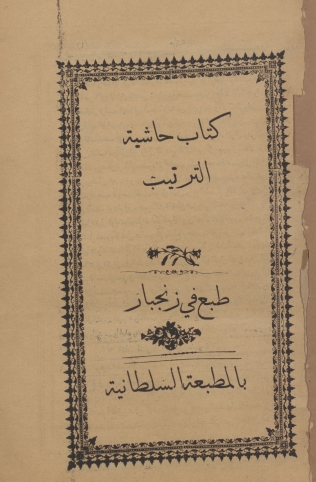 كتاب حاشية
الترتيب
طبع في زنجبار
بالمطبعة السلطانية